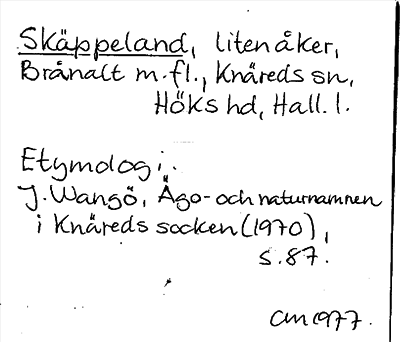 Skäppeland, liten åker,
Brånalt m.fl., Knäreds sn,
Höks hd, Hall. l.
Etymologi:
J. Wangö, Ägo- och naturnamnen
i Knäreds socken (1970),
s. 87.
1977.